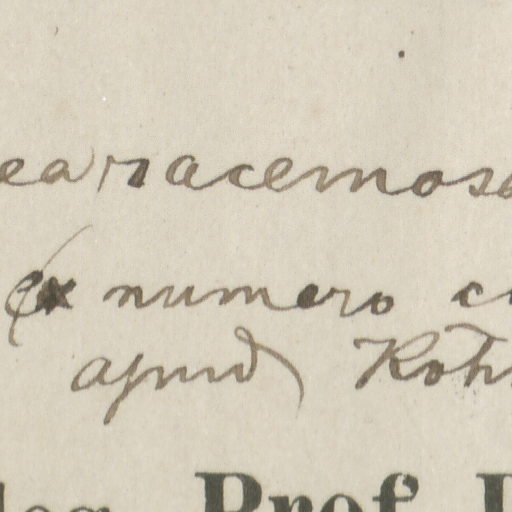 ea racemosa
(ex numero c
apud Roth
leg. Prof. D